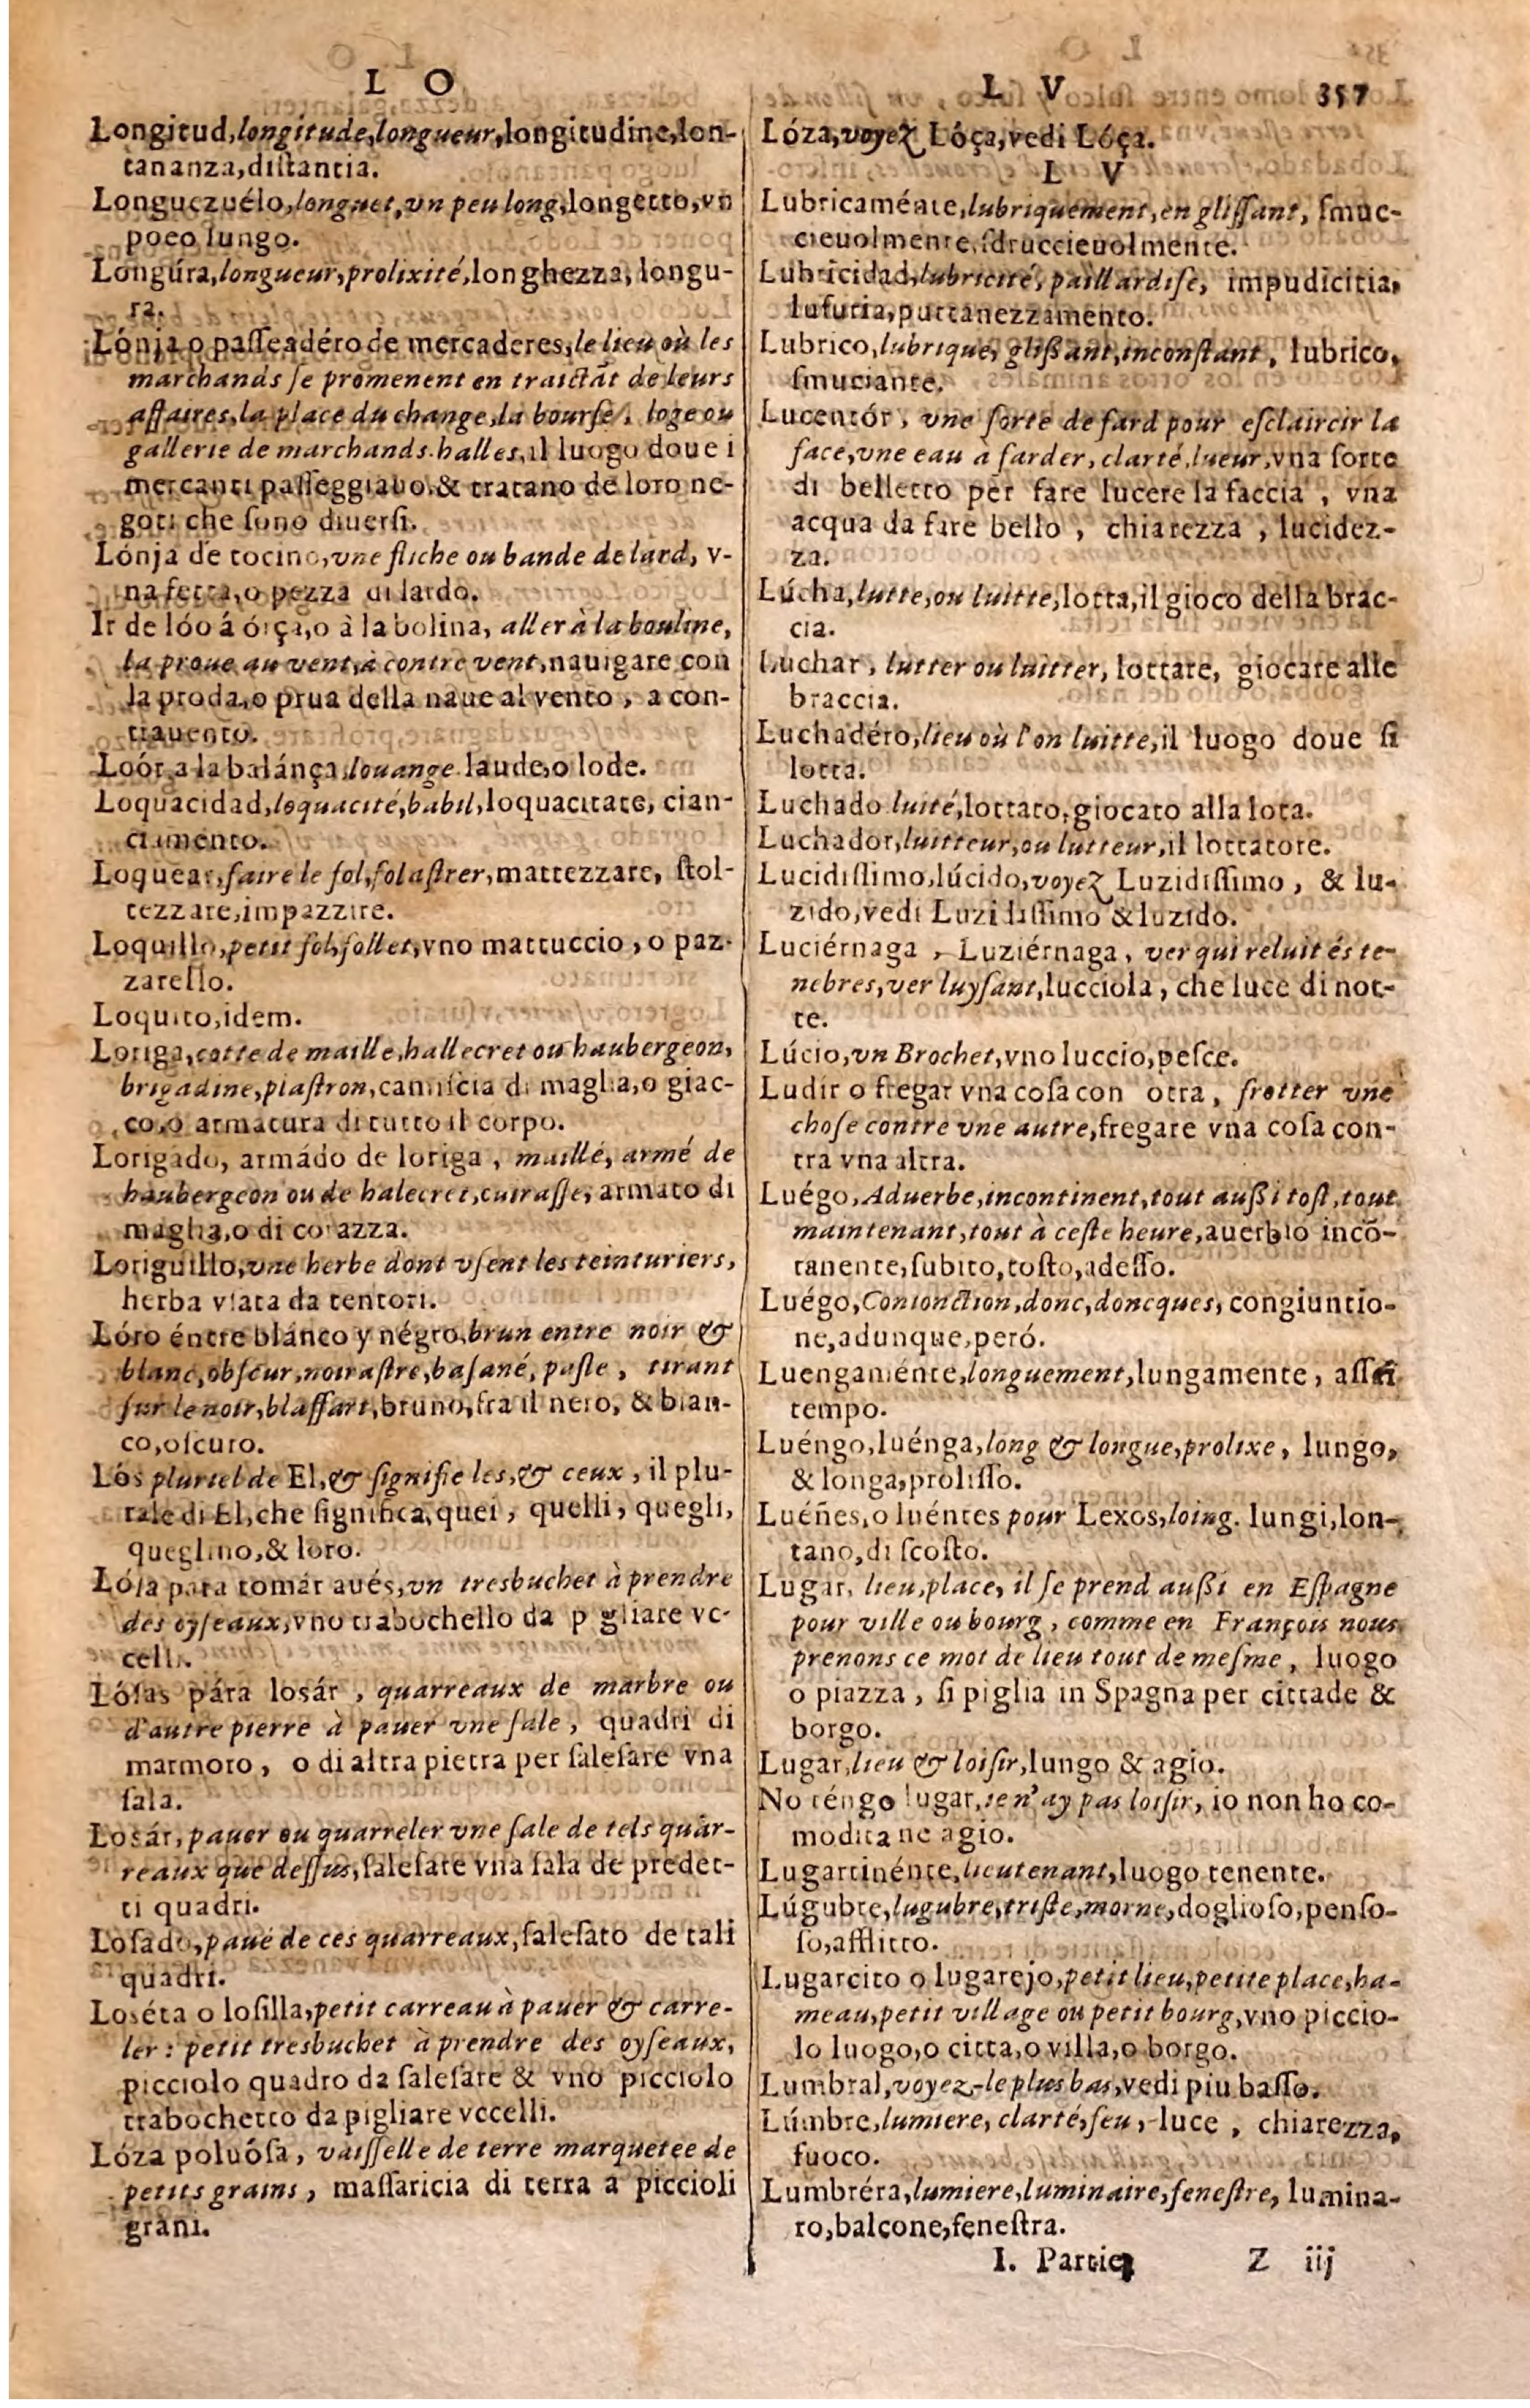 L O
Longitud, longitude, longueur, longitudine, lon-
tananza, distantia.
Longuezuélo, longuet, vn peu long, longetto, vn
poco lungo.
Longúra, longueur, prolixité, longhezza, longu-
ra.
Lónja o passeadéro de mercaderes, le lieu où les
marchands se promenent en traictãt de leurs
affaires, la place du change, la bourse, loge ou
gallerie de marchands. halles, il luogo doue i
mercanti passeggiabo, & tratano de loro ne-
goti che sono diuersi.
Lónja de tocino, vne fliche ou bande de lard, v-
na fetta, o pezza di lardo.
Ir de lóo á órça, o à la bolina, aller à la bouline,
la proue au vent, à contre vent, nauigare con
la proda, o prua della naue al vento, a con-
trauento.
Loór, a la balánça, louange. laude, o lode.
Loquacidad, loquacité, babil, loquacitate, cian-
ciamento.
Loquear, faire le fol, folastrer, mattezzare, stol-
tezzare, impazzire.
Loquillo, petit fol, follet, vno mattuccio, o paz-
zarello.
Loquito, idem.
Loriga, cotte de maille, hallecret ou haubergeon,
brigadine, plastron, camiscia di maglia, o giac-
co, o armatura di tutto il corpo.
Lorigado, armádo de loriga, maillé, armé de
haubergeon ou de halecret, cuirasse, armato di
maglia, o di corazza.
Loriguillo, vne herbe dont vsent les teinturiers,
herba vsata da tentori.
Lóro éntre blánco y négro, brun entre noir &
blanc, obscur, noirastre, basané, pasle, tirant
sur le noir, blaffart, bruno, fra il nero, & bian-
co, oscuro.
Lós pluriel de El, & signifie les, & ceux, il plu-
rale di El, che significa, quei, quelli, quegli,
queglino, & loro.
Lósa pára tomár aués, vn tresbuchet à prendre
des oyseaux, vno trabochello da p gliare vc-
celli.
Lósas pára losár, quarreaux de marbre ou
d'autre pierre à pauer vne sale, quadri di
marmoro, o di altra pietra per salesare vna
sala.
Losár, pauer ou quarreler vne sale de tels quar-
reaux que dessus, salesare vna sala de predet-
ti quadri.
Losado, paué de ces quarreaux, salesato de tali
quadri.
Loséta o losilla, petit carreau à pauer & carre-
ler: petit tresbuchet à prendre des oyseaux,
picciolo quadro da salesare & vno picciolo
trabochetto da pigliare vccelli.
Lóza poluósa, vaisselle de terre marquetee de
petits grains, massaricia di terra a piccioli
grani.
L V 357
Lóza, voyez Lóça, vedi Lóça.
L V
Lubricaménte, lubriquement, en glissant, smuc-
cieuolmente, sdruccieuolmente.
Lubricidad, lubricité, paillardise, impudicitia,
lusuria, puttanezzamento.
Lubrico, lubrique, glißant, inconstant, lubrico,
smuciante.
Lucentór, vne sorte de fard pour esclaircir la
face, vne eau a farder, clarté, lueur, vna sorte
di belletto per fare lucere la faccia, vna
acqua da fare bello, chiarezza, lucidez-
za.
Lúcha, lutte, ou luitte, lotta, il gioco della brac-
cia.
Luchar, lutter ou luitter, lottare, giocare alle
braccia.
Luchadéro, lieu où l'on luitte, il luogo doue si
lotta.
Luchado luité, lottato, giocato alla lota.
Luchador, luitteur, ou lutteur, il lottatore.
Lucidissimo, lúcido, voyez Luzidissimo, & lu-
zido, vedi Luzidissimo & luzido.
Luciérnaga, Luziérnaga, ver qui reluit és te-
nebres, ver luysant, lucciola, che luce di not-
te.
Lúcio, vn Brochet, vno luccio, pesce.
Ludir o fregar vna cosa con otra, frotter vne
chose contre vne autre, fregare vna cosa con-
tra vna altra.
Luégo, Aduerbe, incontinent, tout außi tost, tout
maintenant, tout à ceste heure, auerbio incõ-
tanente, subito, tosto, adesso.
Luégo, Conionction, donc, doncques, congiuntio-
ne, adunque, peró.
Luengaménte, longuement, lungamente, assai
tempo.
Luéngo, luénga, long & longue, prolixe, lungo,
& longa, prolisso.
Luéñes, o luéntes pour Lexos, loing. lungi, lon-
tano, di scosto.
Lugar, lieu, place, il se prend außi en Espagne
pour ville ou bourg, comme en François nous
prenons ce mot de lieu tout de mesme, luogo
o piazza, si piglia in Spagna per cittade &
borgo.
Lugar, lieu & loisir, lungo & agio.
No téngo lugar, ie n'ay pas loisir, io non ho co-
modita ne agio.
Lugartinénte, lieutenant, luogo tenente.
Lúgubre, lugubre, triste, morne, doglioso, penso-
so, afflitto.
Lugarcito o lugarejo, petit lieu, petite place, ha-
meau, petit village ou petit bourg, vno piccio-
lo luogo, o citta, o villa, o borgo.
Lumbral, voyez-le plus bas, vedi piu basso.
Lúmbre, lumiere, clarté, feu, luce, chiarezza,
fuoco.
Lumbréra, lumiere, luminaire, fenestre, lumina-
ro, balcone, fenestra.
I. Partie, Z iij